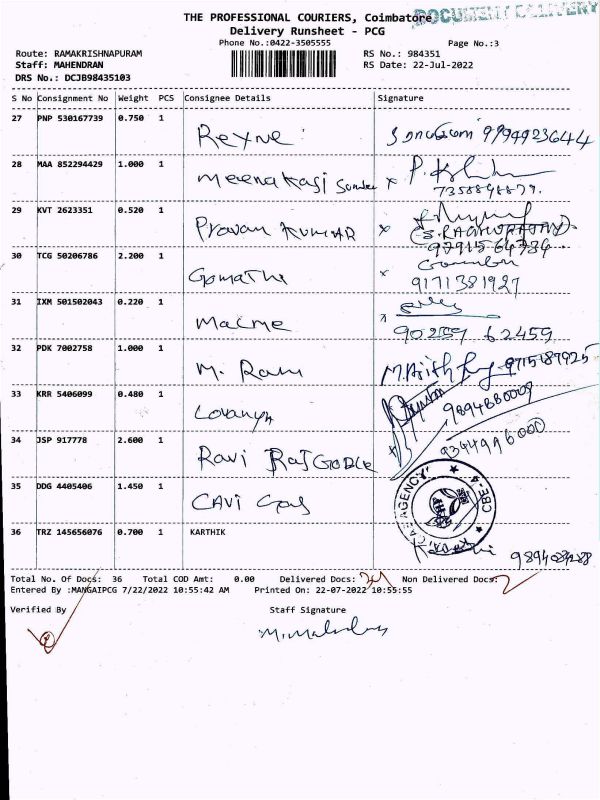 THE PROFESSIONAL COURIERS, Coimbatore
DOCUMENT DELIVERY
Delivery Runsheet - PCG
Phone No.:0422-3505555
Page No.:3
Route: RAMAKRISHNAPURAM
RS No.: 984351
Staff: MAHENDRAN
RS Date: 22-Jul-2022
DRS No.: DCJB98435103
S No Consignment No Weight PCS Consignee Details Signature
27 PNP 530167739 0.750 1
Reyne
28 MAA 852294429 1.000 1
Meenakasi
29 KVT 2623351 0.520 1
Pravan KUMAR
30 TCG 50206786 2.200 1
Gomathi
9171381927
31 IXM 501502043 0.220 1
Macme
90259 62459
32 PDK 7002758 1.000 1
M. Ram
33 KRR 5406099 0.480 1
Lavanya
9894880009
34 JSP 917778 2.600 1
Ravi
9344996000
35 DDG 4405406 1.450 1
CAVI Gas
AGENCY
36 TRZ 145656076 0.700 1 KARTHIK
Total No. Of Docs: 36 Total COD Amt: 0.00 Delivered Docs: 34 Non Delivered Docs: 2
Entered By :MANGAIPCG 7/22/2022 10:55:42 AM Printed On: 22-07-2022 10:55:55
Verified By Staff Signature